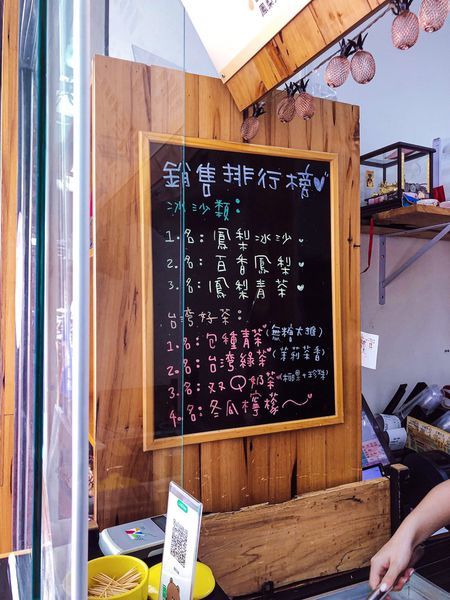 銷售排行榜
冰沙類：
1.名：鳳梨冰沙
2.名：百香鳳梨
3.名：鳳梨青茶
台灣好茶：
1.名：包種青茶(無糖大推)
2.名：台灣綠茶(茉莉茶香)
3.名：双Q奶茶(椰果+珍珠)
4.名：冬瓜檸檬